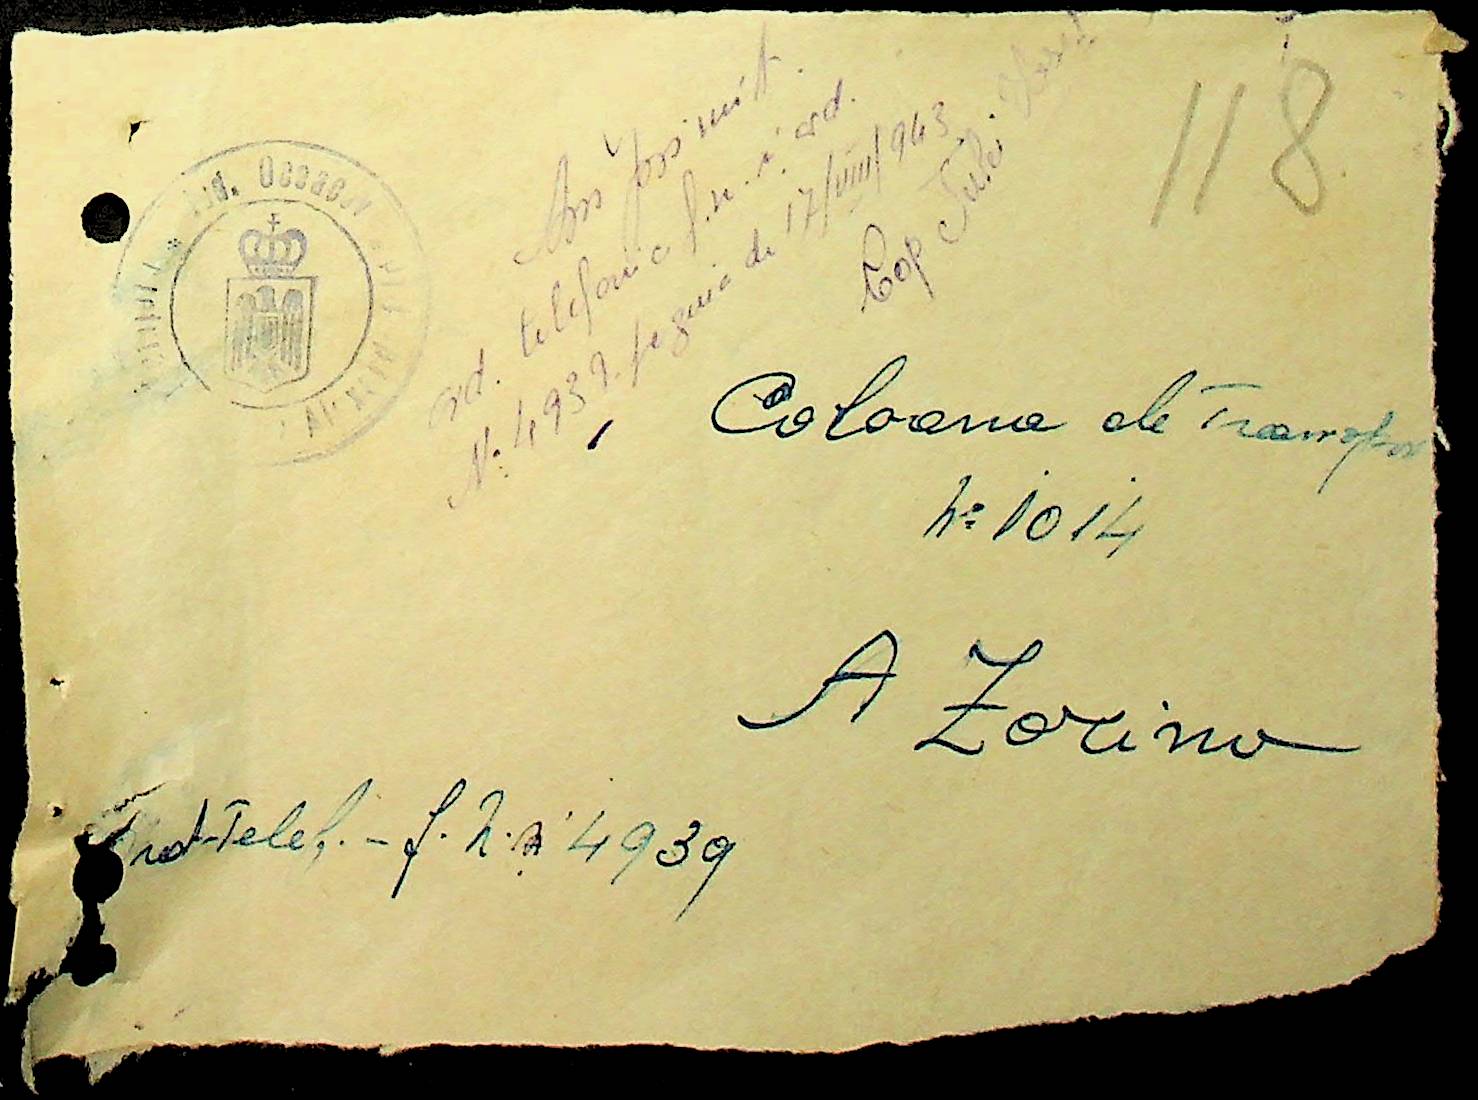 118
Am primit
ord. telefonic f. n. și ord.
N. 4939 pe ziua de 17/VIII/943
Cap
Coloana de Transpor
No 1014
A Zorino
Ord-Telef. - f. N. 4939